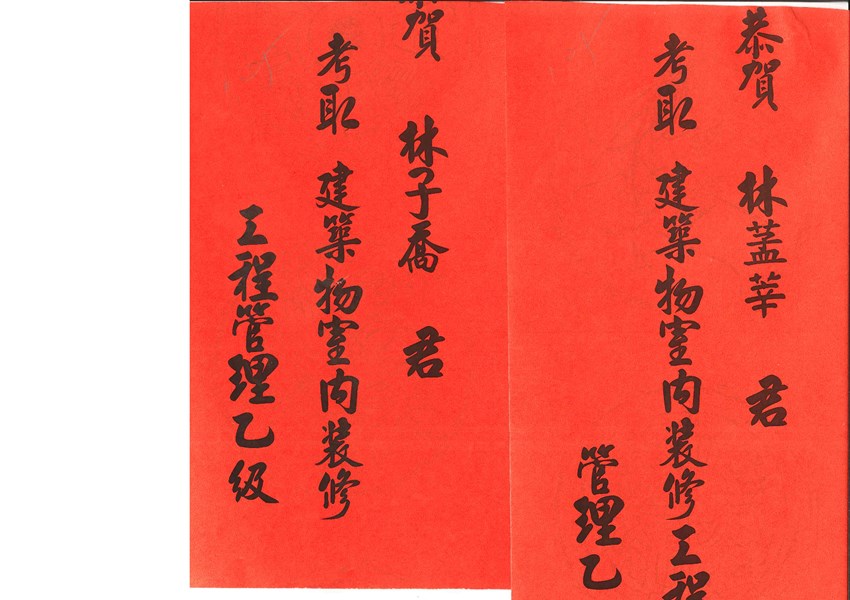 恭賀 林蓋莘 君
考取 建築物室内裝修工程
管理乙
賀 林子喬 君
考取 建築物室内裝修
工程管理乙級